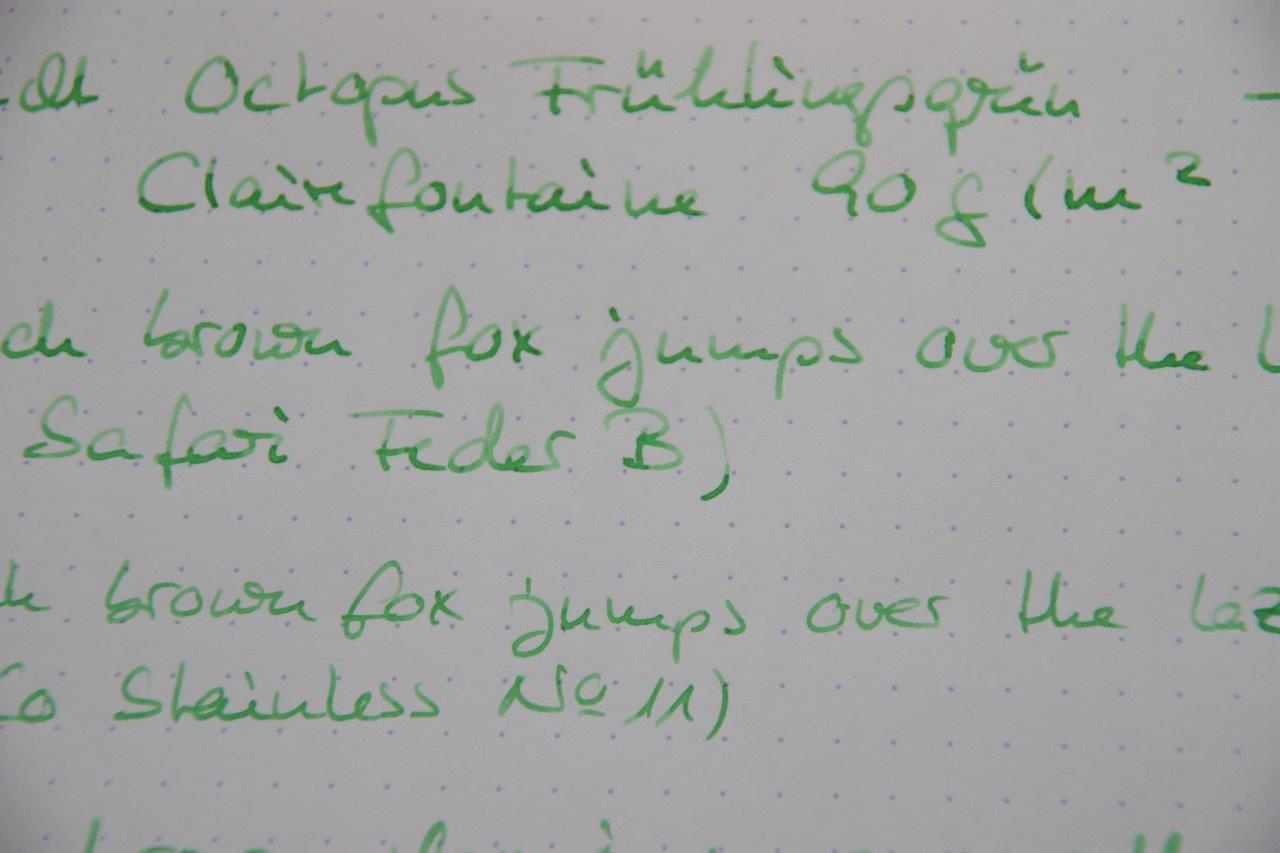 Octopus Frühlingsgrün -
Clairefontaine 90 g/m²
brown fox jumps over the
Safari Feder B)
brown fox jumps over the laz
Co Stainless Nº 11)